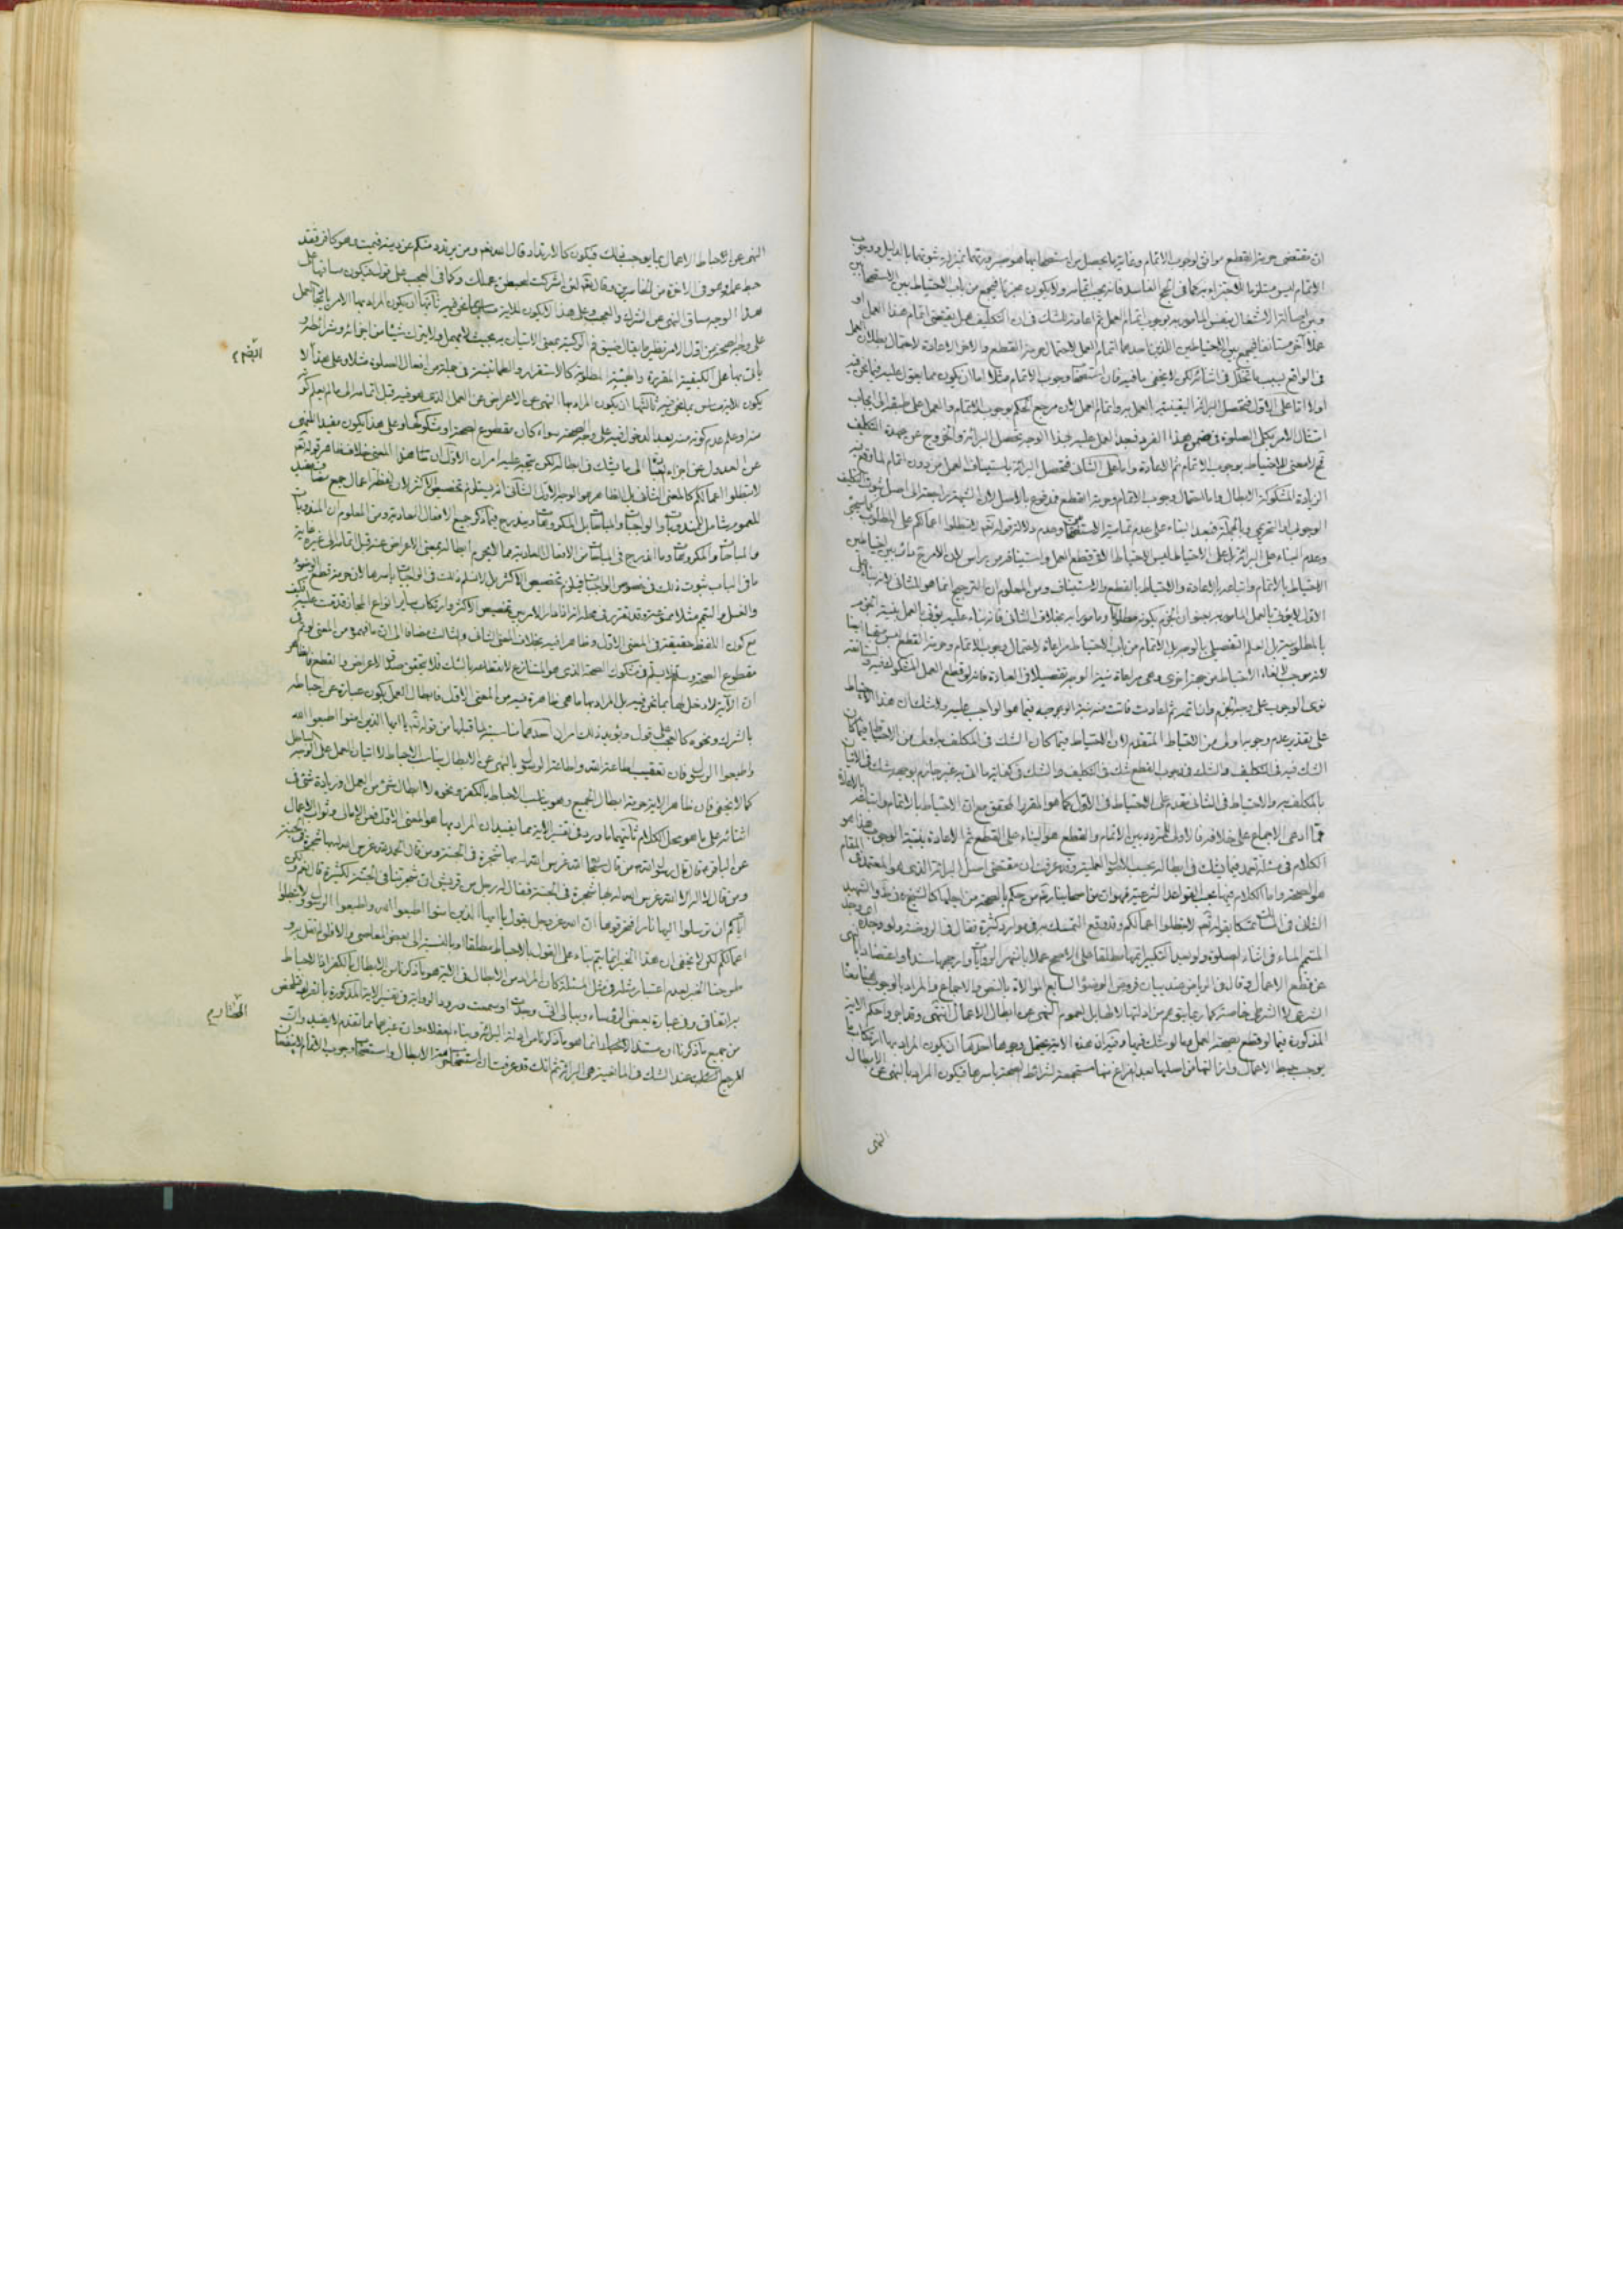 ان مقتضى حرمة القطع موافق لوجوب الاتمام وغاية ما يحصل من استصحابها هو صيرورتها بمنزلة ثبوتها بالدليل ووجوب
الاتمام ليس مستلزما للاجتزاء به كما فى الحج الفاسد فانه يجب اتمامه ولا يكون مجزيا فيجمع من باب الاحتياط بين الاستصحابين
وبين اصالة الاشتغال بنفس المأمور به بوجوب اتمام العمل ثم اعادته للشك فى ان التكليف هل يقتضى اتمام هذا العمل او
عملا آخر مستأنفا فيجمع بين الاحتياطين اللذين احدهما اتمام العمل لاحتمال حرمة القطع والاخر الاعادة لاحتمال بطلان العمل
فى الواقع بسبب ما تخلل فى اثنائه لكن لا يخفى ما فيه فان استصحاب وجوب الاتمام مثلا اما ان يكون مما يعول عليه فيما نحن فيه
اولا اما على الاول فتحصل البرائة اليقينية بالعمل به واتمام العمل لان مرجع الحكم بوجوب الاتمام والعمل على طبقه الى ايجاب
امتثال الامر بكلى الصلوة فى ضمن هذا الفرد فبعد العمل عليه بهذا الوجه تحصل البرائة والخروج عن عهدة التكليف
فلا معنى للاحتياط بوجوب الاتمام ثم الاعادة واما على الثانى فتحصل البرائة باستيناف العمل من دون اتمام لما وقع فيه
الزيادة المشكوكة الابطال واما احتمال وجوب الاتمام وحرمة القطع فمدفوع بالاصل لان الشبهة راجعة الى اصل ثبوت التكليف
الوجوبى او التحريمى وبالجملة فبعد البناء على عدم تمامية الاستصحاب وعدم دلالة قوله تعالى لا تبطلوا اعمالكم على المطلوب كما سيجئ
وعدم البناء على البرائة بل على الاحتياط فليس الاحتياط الا فى قطع العمل واستينافه من رأس لان الامر ح دائر بين احتياطين
الاحتياط بالاتمام واتباعه بالاعادة والاحتياط بالقطع والاستيناف ومن المعلوم ان الترجيح انما هو للثانى لانه بناء على
الاول لا يؤتى بالعمل المأمور به بعنوان الجزم بكونه مطلوبا ومأمورا به بخلاف الثانى فانه بناء عليه يؤتى بالعمل بنية الجزم
بالمطلوبية بل العلم التفصيلى بالوجه بل الاتمام من باب الاحتياط مراعاة لاحتمال وجوب الاتمام وحرمة القطع
لانه موجب لالغاء الاحتياط من جهة اخرى وهى مراعاة نية الوجه تفصيلا فى العبادة فانه لو قطع العمل المشكوك فيه واستانفه
نوى الوجوب على وجه الجزم وان اتمه ثم اعاد فاتت منه نية الوجوب فيما هو الواجب عليه ولا شك ان هذا الاحتياط
على تقدير عدم وجوبه اولى من الاحتياط المتقدم لان الاحتياط فيما كان الشك فى المكلف به اولى من الاحتياط فيما كان
الشك فيه فى التكليف والشك فى وجوب القطع شك فى التكليف والشك فى كفاية ما اتى به غير جازم بوجهه شك فى الاتيان
بالمكلف به والاحتياط فى الثانى مقدم على الاحتياط فى الاول كما هو المقرر المحقق مع ان الاحتياط بالاتمام واتباعه بالاعادة
مما ادعى الاجماع على خلافه فالاولى للمتردد بين الاتمام والقطع هو البناء على القطع ثم الاعادة بنية الوجوب هذا هو
الكلام فى مسئلة العمد فيما يشك فى ابطاله بحسب الاصول العملية وقد عرفت ان مقتضى اصل البرائة الذى هو المعتمد فى المقام
هو الصحة واما الكلام فيها بحسب القواعد الشرعية فهو ان من اصحابنا ره من حكم بالصحة من اجلها كالشيخ فى ط والشهيد
الثانى فى الذات تمسكا بقوله تعالى لا تبطلوا اعمالكم وقد وقع التمسك به فى موارد كثيرة فقال فى الروضة ولو وجده اى وجد
المتيمم الماء فى اثناء الصلوة ولو بعد التكبير اتمها مطلقا على الاصح عملا باشهر الروايات وارجحها سندا واعتضادا بالنهى
عن قطع الاعمال وقال فى الرياض عند بيان فروض الوضوء السابع الموالاة بالنص والاجماع والمراد بالوجوب هنا معنا
الشرعى لا الشرطى خاصة كما ربما يتوهم من ادلتها لاطلاق بل عموم النهى عن ابطال الاعمال انتهى وتعدى واحكم الاية
المذكورة فيما لو قطع بصحة العمل وما لو شك فيها وفيه ان هذه الاية تحتمل وجوها احدها ان يكون المراد بها ارتكاب ما
يوجب حبط الاعمال وازالتها من اصلها بعد الفراغ منها مستجمعة لشرائط الصحة باسرها فيكون المراد بالنهى عن الابطال
النهى
النهى عن الاحباط الاعمال بما يوجب ذلك فيكون كالارتداد قال الله تعالى ومن يرتدد منكم عن دينه فيمت وهو كافر فقد
حبط عمله وهو فى الاخرة من الخاسرين وقال تعالى لئن اشركت ليحبطن عملك وكما فى العجب على قول فيكون مساقها على
هذا الوجه مساق النهى عن الشرك والعجب وعلى هذا لا يكون للاية مساس بما نحن فيه ثانيها ان يكون المراد بها الامر بايجاد العمل
على وجه الصحة من اول الامر نظير ما يقال ضيق فم الركية بمعنى الاتيان به بحيث لا يبطل ولا يترك شيئا من اجزائه وشرائطه و
يأتى بها على الكيفية المقررة والهيئة المطلوبة كالاستقرار والطمأنينة فى جملة من افعال الصلوة مثلا وعلى هذا لا
يكون للاية مساس بما نحن فيه ثالثها ان يكون المراد بها النهى عن الاعراض عن العمل الذى هو فيه قبل اتمامه الى ما لم يعلم كونه
منه او علم عدم كونه منه بعد الدخول فيه على وجه الصحة سواء كان مقطوع الصحة او مشكوكها وعلى هذا يكون مفيد النهى
عن العدول عن اجزاء العبادة الى ما يشك فى ابطاله لكن يتجه عليه امران الاول ان هذا المعنى خلاف ظاهر قوله تعالى
لا تبطلوا اعمالكم كالمعنى الثانى بل الظاهر هو الوجه الاول الثانى انه يستلزم تخصيص الاكثر لان لفظ اعمال جمع مضاف يفيد
للعموم شامل للمندوبات والواجبات والمباحات بل المكروهات ويندرج فيما ذكر جميع الافعال العادية ومن المعلوم ان المندوبات
والمباحات والمكروهات وما اندرج فى المباحات من الافعال العادية مما لا يحرم ابطاله بمعنى الاعراض عنه قبل اتمامه الى غيره غاية
ما فى الباب ثبوت ذلك فى خصوص الواجبات فيلزم تخصيص الاكثر بل لا نسلم ذلك فى الواجبات باسرها لان حرمة قطع الوضوء
والغسل والتيمم مثلا ممنوعة وقد تقرر فى محله انه اذا دار الامر بين تخصيص الاكثر وارتكاب ساير انواع المجاز قدمت عليه فكيف
مع كون اللفظ حقيقة فى المعنى الاول وظاهرا فيه بخلاف المعنى الثانى والثالث مضافا الى ان ما فهموه من المعنى لو تم فى
مقطوع الصحة وسلم لا يسلم فى مشكوك الصحة الذى هو المتنازع لانقطاعه بالشك فلا يتحقق صدق الاعراض والقطع فالظاهر
ان الآية لا دخل لها بما نحن فيه بل المراد بها ما هى ظاهرة فيه من المعنى الاول فابطال العمل يكون عبارة عن احباطه
بالشرك ونحوه كالعجب على قول ويؤيد ذلك امران احدهما مناسبته لما قبلها من قوله تعالى يا ايها الذين امنوا اطيعوا الله
واطيعوا الرسول فان تعقيب اطاعة الله واطاعة الرسول بالنهى عن الابطال يناسب الاحباط لا اتيان العمل على الوجه الباطل
كما لا يخفى فان ظاهر الاية حرمة ابطال الجميع وهو يناسب الاحباط بالكفر ونحوه لا ابطال شئ من العمل وزيادة شئ فى
اثنائه على ما هو محل الكلام ثانيهما ما ورد فى تفسير الاية مما يفيد ان المراد بها هو المعنى الاول فعن الامالى وثواب الاعمال
عن الباقر ع قال قال رسول الله ص من قال سبحان الله غرس الله له بها شجرة فى الجنة ومن قال الحمد لله غرس الله له بها شجرة فى الجنة
ومن قال لا اله الا الله غرس الله له بها شجرة فى الجنة فقال له رجل من قريش ان شجرتنا فى الجنة لكثيرة قال نعم ولكن
اياكم ان ترسلوا اليها نارا فتحرقوها ان الله عز وجل يقول يا ايها الذين امنوا اطيعوا الله واطيعوا الرسول ولا تبطلوا
اعمالكم لكن لا يخفى ان هذا الخبر انما يتم بناء على القول بالاحباط مطلقا او بالنسبة الى بعض المعاصى والا فلو لم نقل به و
طرحنا الخبر لعدم اعتبار مثله فى مثل المسئلة كان المراد من الابطال فى الاية هو ما ذكرنا من الابطال بالكفر اذ الاحباط
به اتفاقى وفى عبارة بعض الرؤساء
من جميع ما ذكرنا ان مستند
المرجع للشك عند الشك فى المانعية هى البرائة ثم انك قد عرفت ان استصحاب حرمة الابطال واستصحاب وجوب الاتمام لا ينفعان